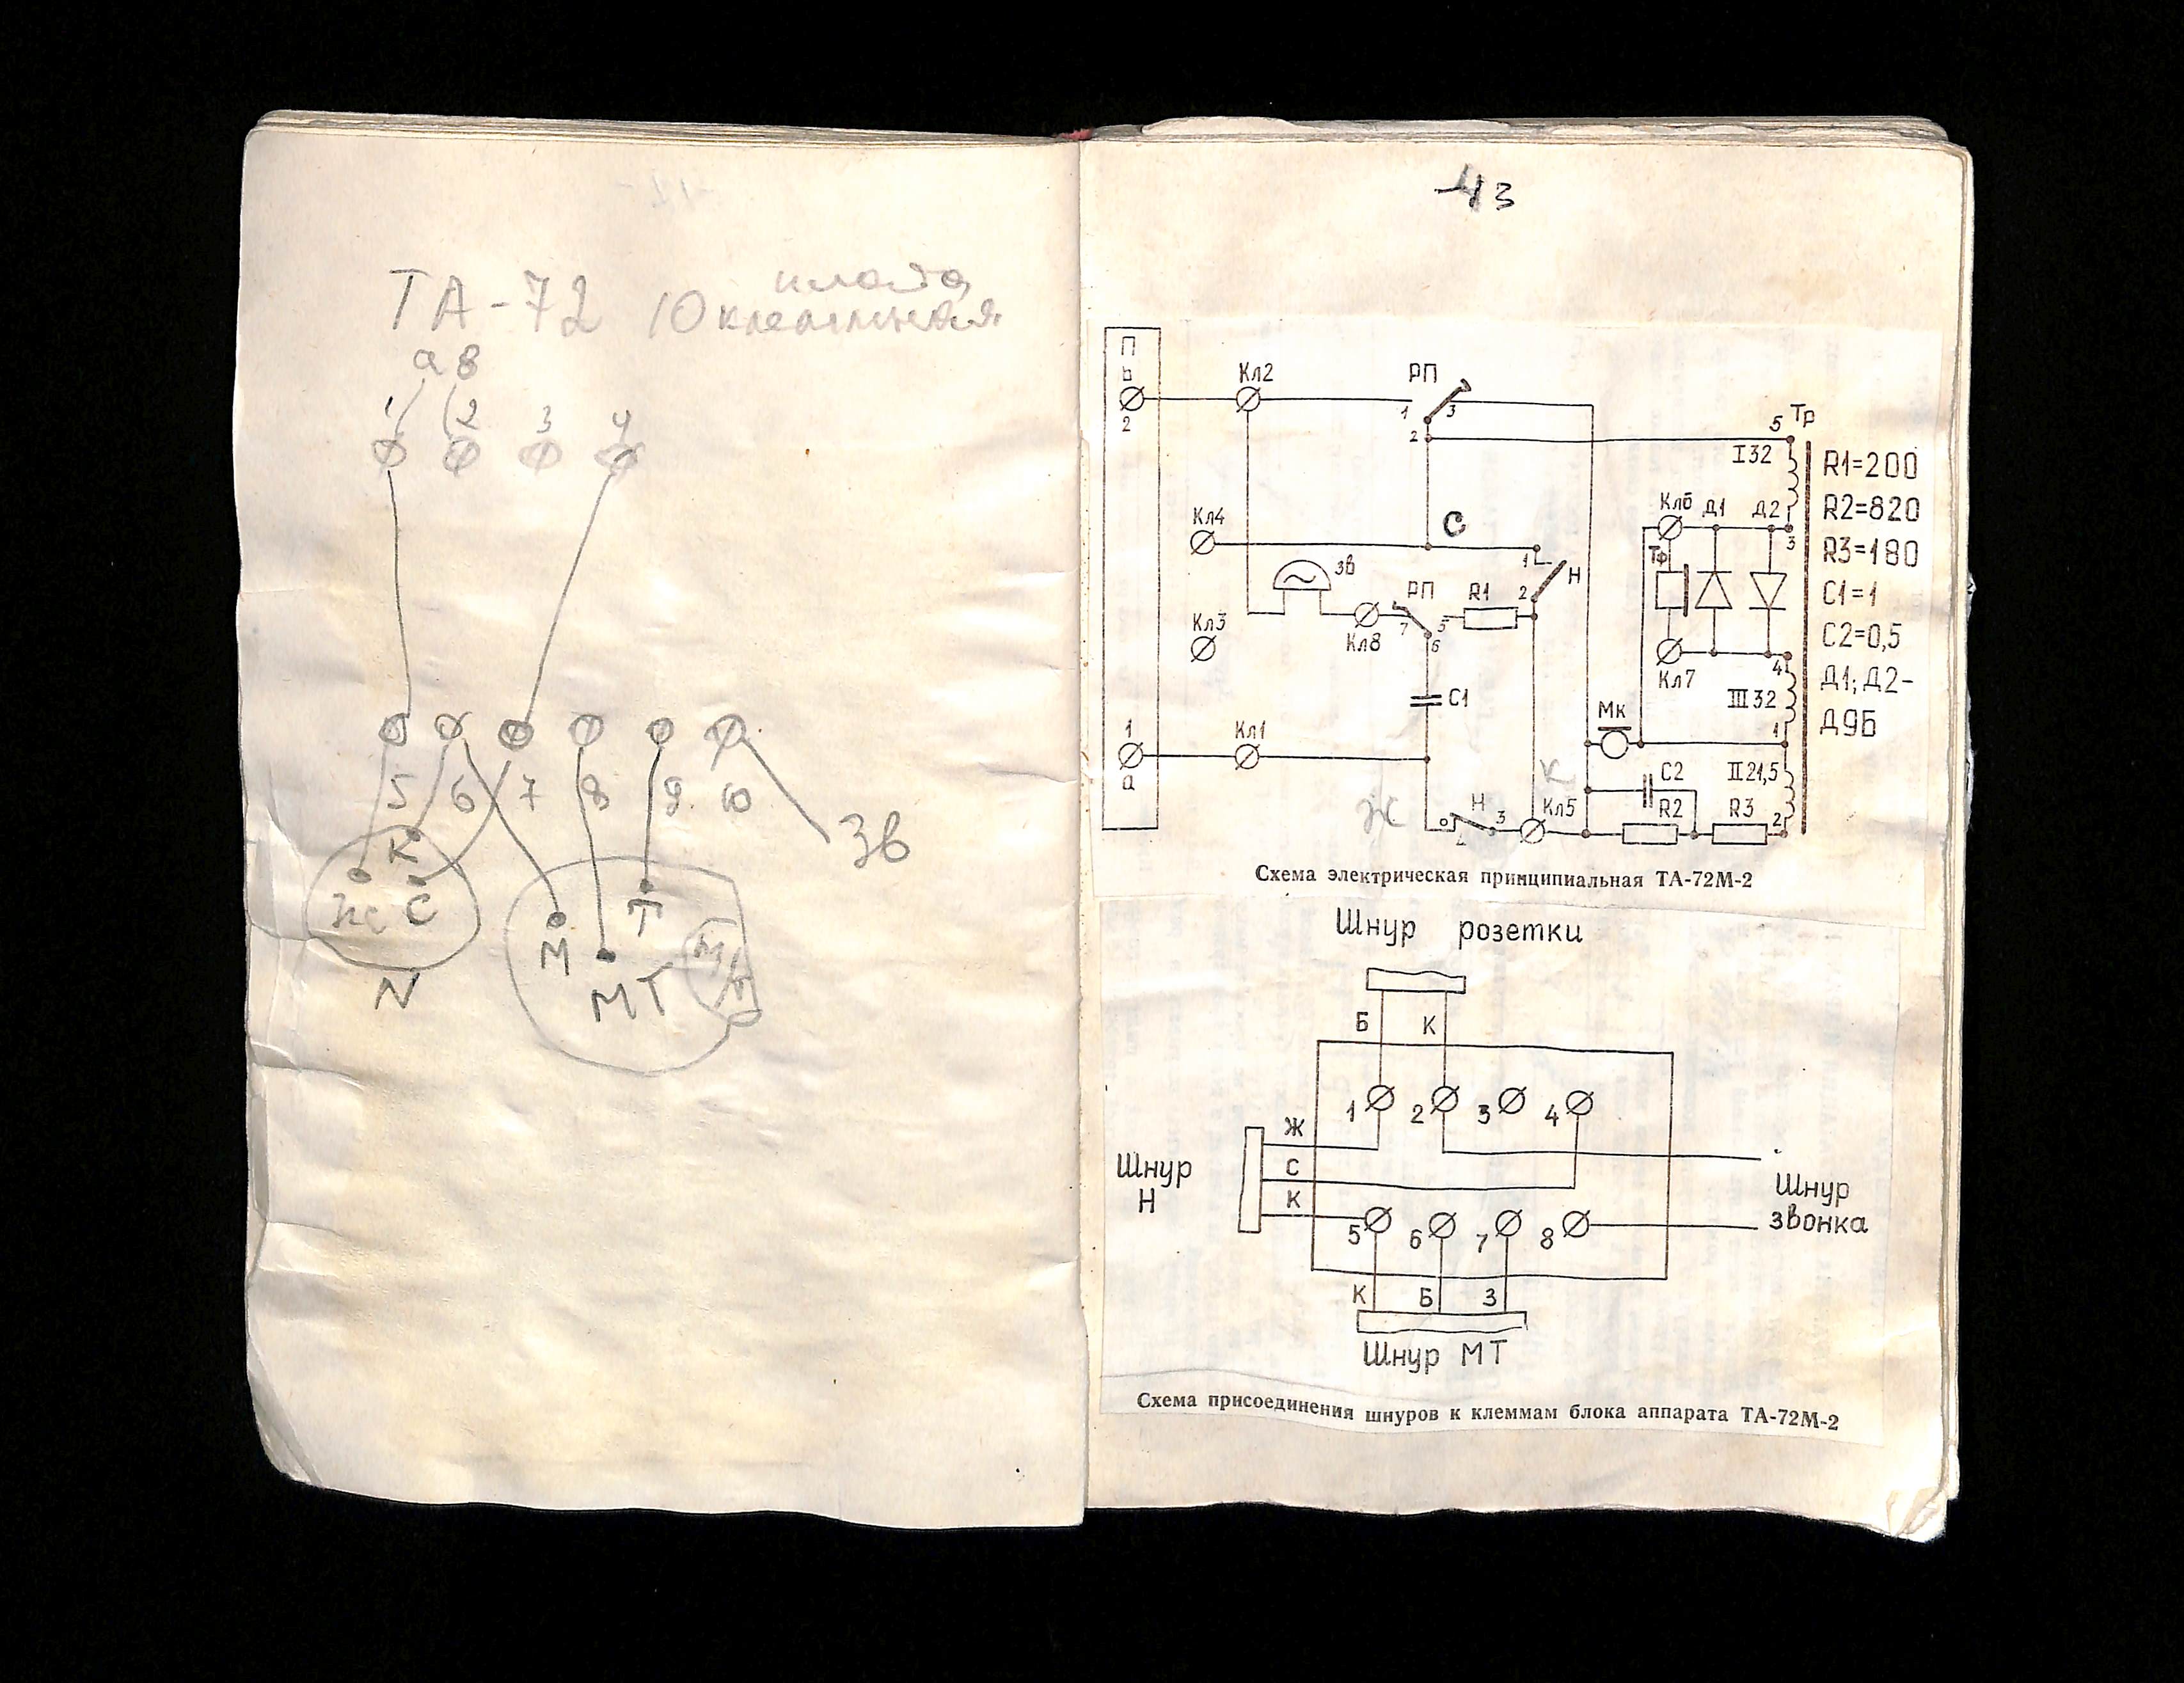 плата
ТА-72 10 клеммная
а в
1 2 3 4
5 6 7 8 9 10
Зв
К
Ж С
N
М Т
МТ
М/Т
-43
П
b
2
Кл2
РП
1 3
2
5 Тр
I32
R1=200
R2=820
R3=180
C1=1
C2=0,5
Д1; Д2-
Д9Б
Кл4
С
Кл6 Д1 Д2
3
Тф
Зв
1
Н
2
РП
R1
7 5
6
Кл8
Кл3
Кл7
4
III32
C1
Мк
1
1
а
Кл1
К
II21,5
C2
Ж
Н
3
4
Кл5
R2
R3
2
Схема электрическая принципиальная ТА-72М-2
Шнур розетки
Б К
1 2 3 4
Ж
С
К
Шнур
Н
Шнур
звонка
5 6 7 8
К Б З
Шнур МТ
Схема присоединения шнуров к клеммам блока аппарата ТА-72М-2